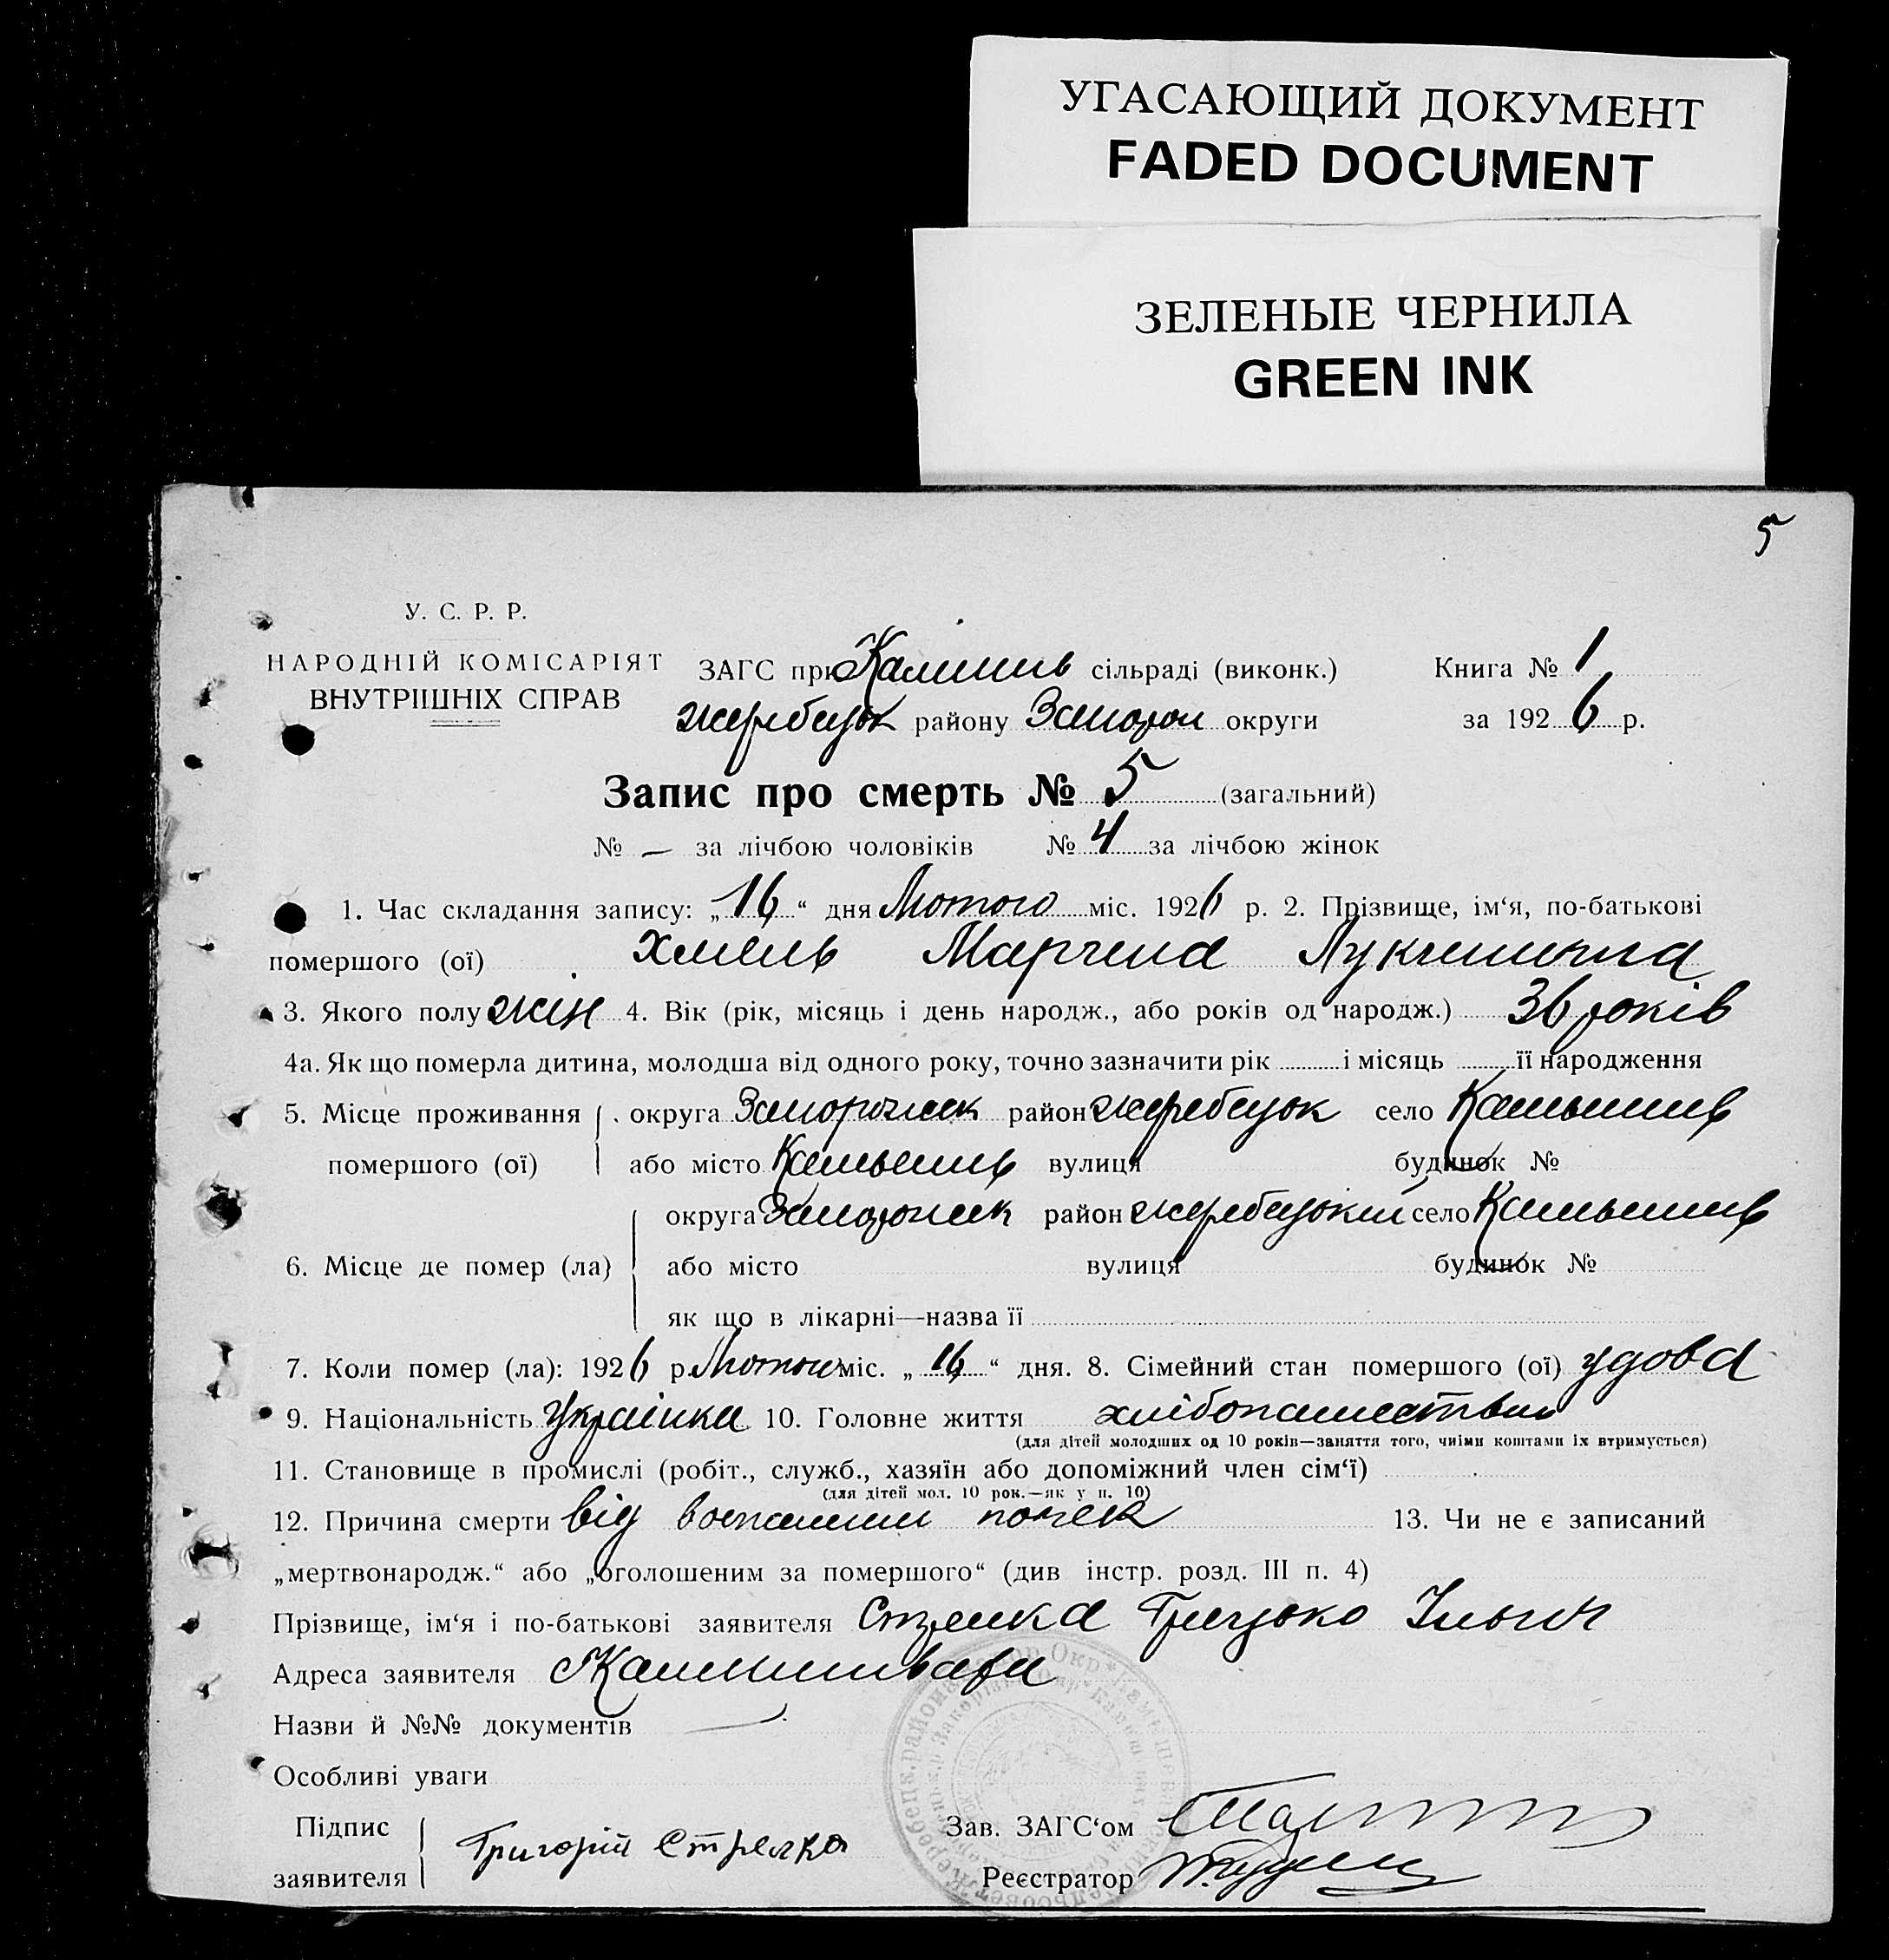 УГАСАЮЩИЙ ДОКУМЕНТ
FADED DOCUMENT
ЗЕЛЕНЫЕ ЧЕРНИЛА
GREEN INK
5
У. С. Р. Р.
НАРОДНІЙ КОМІСАРІЯТ
ВНУТРІШНІХ СПРАВ
ЗАГС при сільраді (виконк.) Книга № 1
Жеребецьк району Запорож округи за 1926 р.
Запис про смерть № 5 (загальний)
№ — за лічбою чоловіків № 4 за лічбою жінок
1. Час складання запису: „16“ дня Лютого міс. 1926 р. 2. Прізвище, ім‘я, по-батькові
помершого (ої) Хмель
3. Якого полу жін 4. Вік (рік, місяць і день народж., або років од народж.) 36 років
4а. Як що померла дитина, молодша від одного року, точно зазначити рік і місяць її народження
5. Місце проживання округа Запорожськ район Жеребецьк село
помершого (ої) або місто вулиця будинок №
округа Запорожськ район Жеребецький село
6. Місце де помер (ла) або місто вулиця будинок №
як що в лікарні—назва її
7. Коли помер (ла): 1926 р. Лютого міс. „16“ дня. 8. Сімейний стан помершого (ої) удова
9. Національність Українка 10. Головне життя хлібопашество
(для дітей молодших од 10 років—заняття того, чиїми коштами їх втримується)
11. Становище в промислі (робіт., служб., хазяїн або допоміжний член сім‘ї)
(для дітей мол. 10 рок.—як у п. 10)
12. Причина смерти від воспаления почек 13. Чи не є записаний
„мертвонародж.“ або „оголошеним за помершого“ (див інстр. розд. III п. 4)
Прізвище, ім‘я і по-батькові заявителя Стрелка Грицько Ільич
Адреса заявителя
Назви й №№ документів —
Особливі уваги
Підпис Зав. ЗАГС‘ом
заявителя Григорій Стрелка Реєстратор